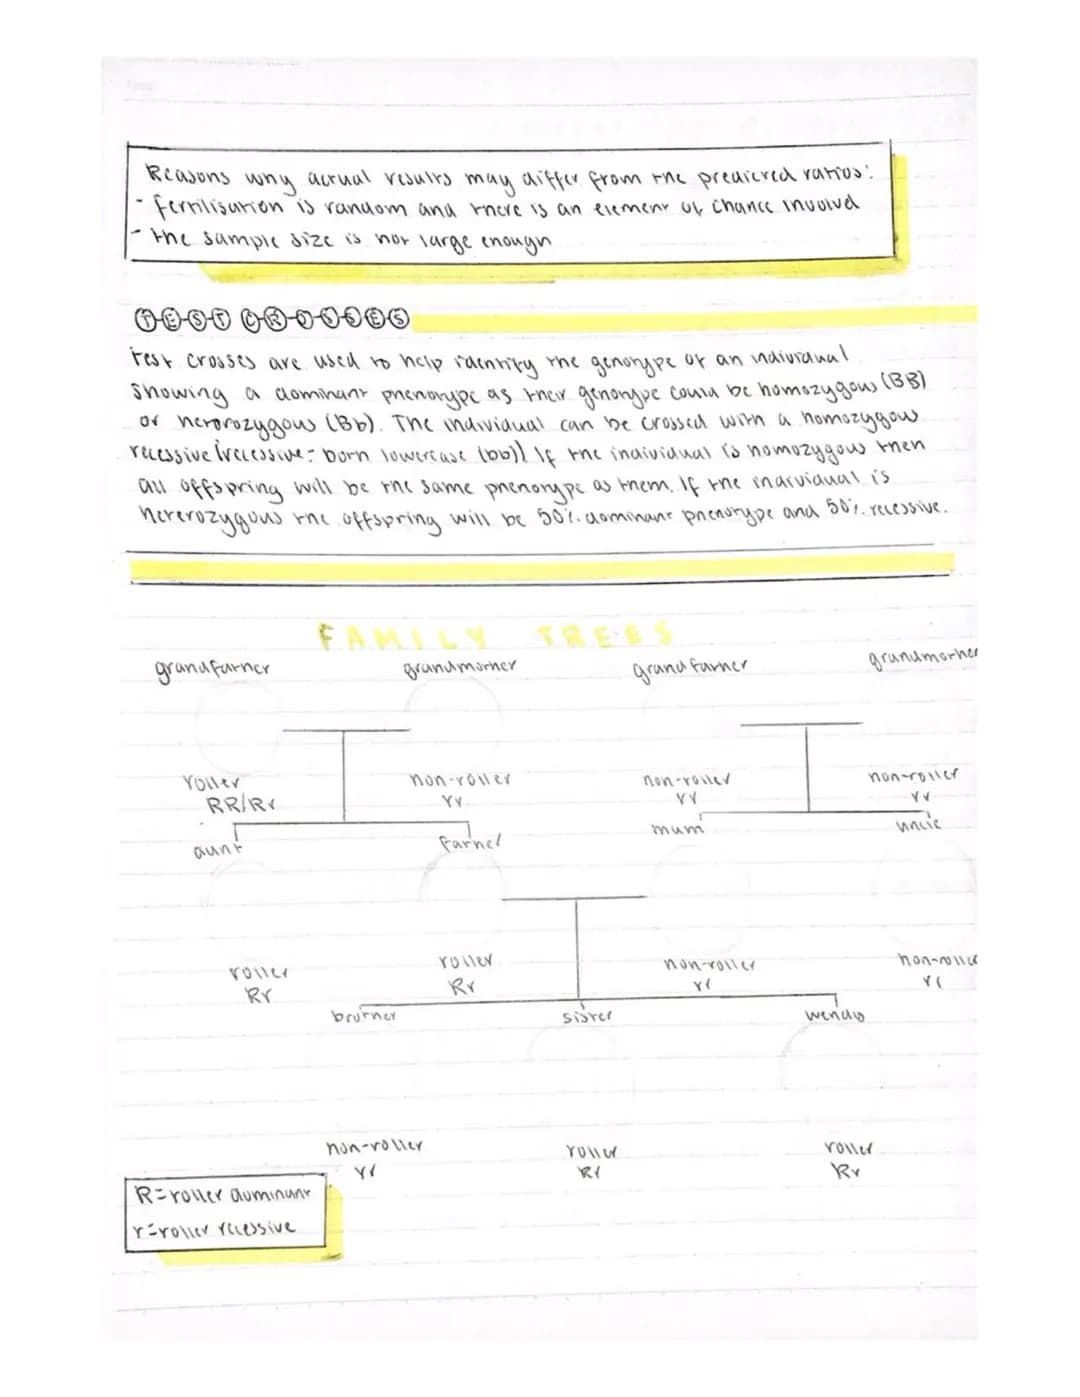 Reasons why actual results may differ from the predicted ratios:
- fertilisation is random and there is an element of chance involvd
- the sample size is not large enough
TEST CROSSES
Test crosses are used to help identify the genotype of an individual
showing a dominant phenotype as their genotype could be homozygous (BB)
or heterozygous (Bb). The individual can be crossed with a homozygous
recessive (recessive = both lowercase (bb)) If the individual is homozygous then
all offspring will be the same phenotype as them. If the individual is
heterozygous the offspring will be 50% dominant phenotype and 50% recessive.
FAMILY TREES
grandfather grandmother grandfather grandmother
roller non-roller non-roller non-roller
RR/Rr rr rr rr
aunt father mum uncle
roller roller non-roller non-roller
Rr Rr rr rr
brother sister wendy
non-roller roller roller
rr Rr Rr
R=roller dominant
r=roller recessive